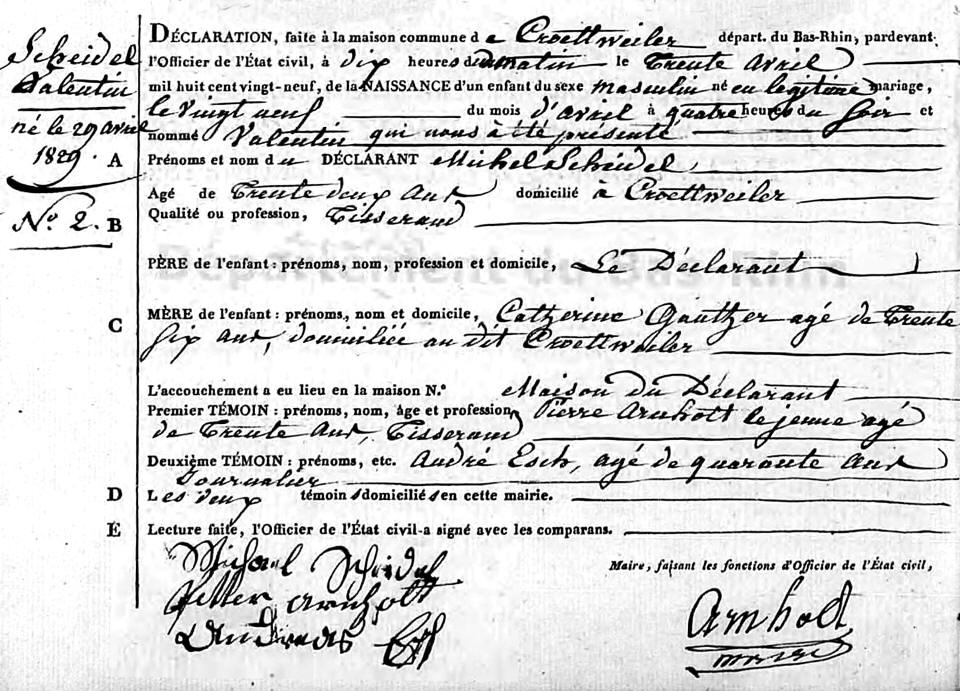 Scheidel
Valentin
né le 29 avril
1829.
No. 2.
DÉCLARATION, faite à la maison commune d e Croettweiler départ. du Bas-Rhin, pardevant
l'Officier de l'État civil, à dix heures du matin le trente avril
mil huit cent vingt-neuf, de la NAISSANCE d'un enfant du sexe masculin né en légitime mariage,
le vingt neuf du mois d'avril à quatre heures du soir et
nommé Valentin qui nous a été présenté
A Prénoms et nom d u DÉCLARANT Michel Scheidel,
Agé de trente deux ans domicilié à Croettweiler
B Qualité ou profession, Tisserand
PÈRE de l'enfant : prénoms, nom, profession et domicile, Le Déclarant
C MÈRE de l'enfant : prénoms, nom et domicile, Catherine Gautzer agé de trente
six ans, domiciliée au dit Croettweiler
L'accouchement a eu lieu en la maison N.° Maison du Déclarant
Premier TÉMOIN : prénoms, nom, âge et profession, Pierre Arnhott le jeune agé
de trente ans, Tisserand
Deuxième TÉMOIN : prénoms, etc. André Esch, agé de quarante ans
Journalier
D Les deux témoins domiciliés en cette mairie.
E Lecture faite, l'Officier de l'État civil a signé avec les comparans.
Michael Scheidel
Petter arnhott
Andreas Esch
Maire, faisant les fonctions d'Officier de l'État civil,
Arnholt
maire
Département du Bas-Rhin